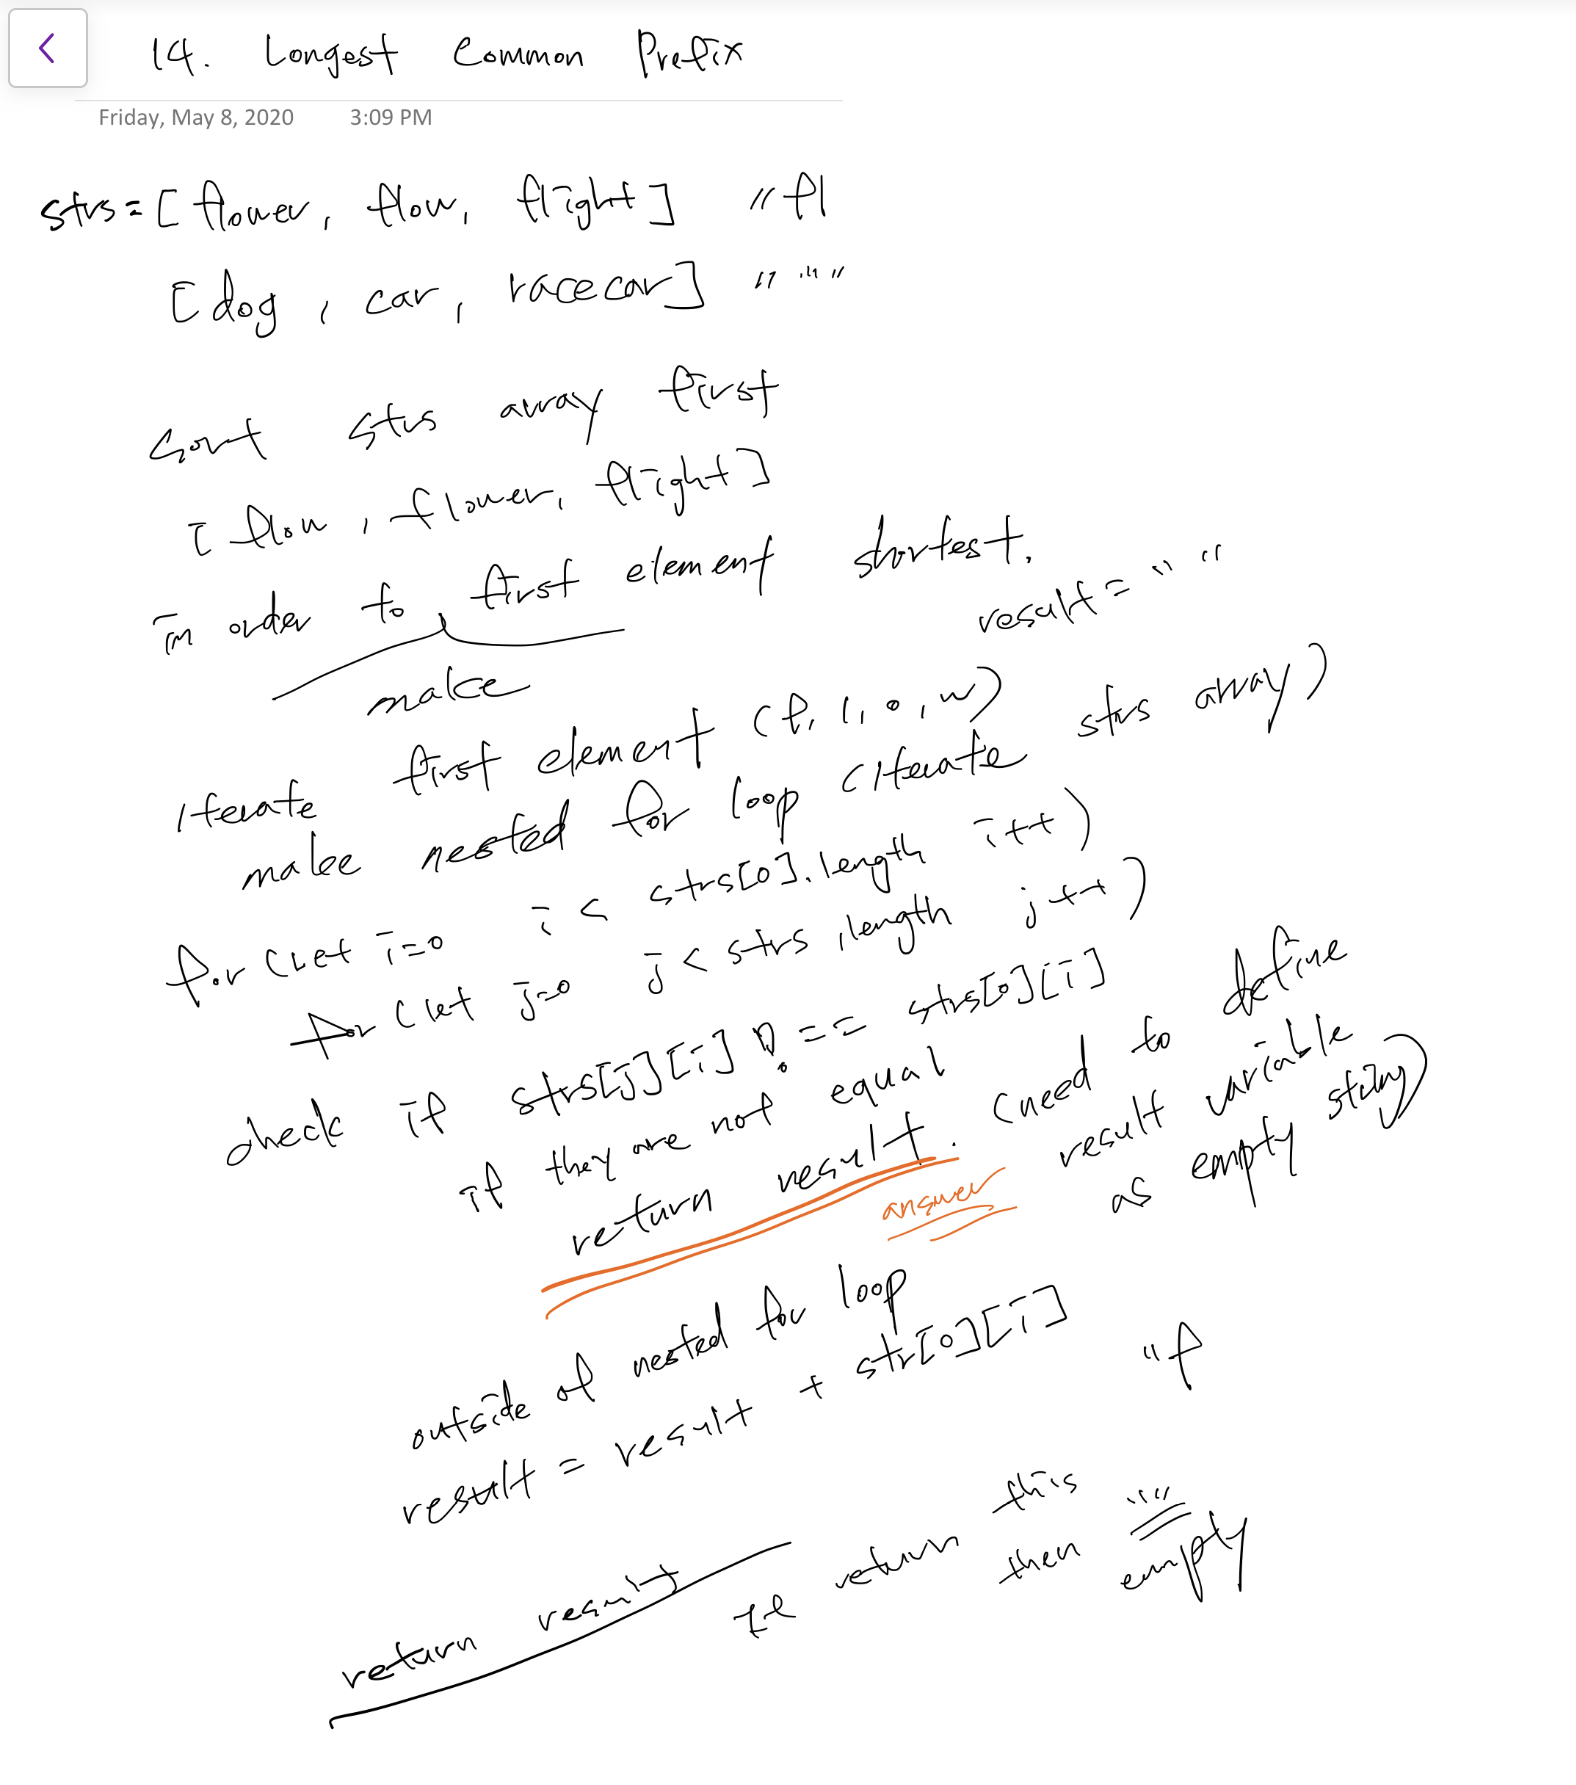 14. Longest Common Prefix
Friday, May 8, 2020 3:09 PM
strs = [ flower, flow, flight ] "fl
[ dog , car , racecar ] " " "
Sort strs array first
[ flow , flower, flight ]
in order to , first element shortest.
make
result = " "
Iterate first element ( f, l, o, w )
make nested for loop ( Iterate strs array )
for ( Let i=0 i < strs[0].length i++ )
for ( let j=0 j < strs.length j++ )
check if strs[j][i] !== strs[0][i]
if they are not equal
return result. (need to define
result variable
as empty string)
answer
outside of nested for loop
result = result + str[0][i] "f
return result
If return this
then ""
empty